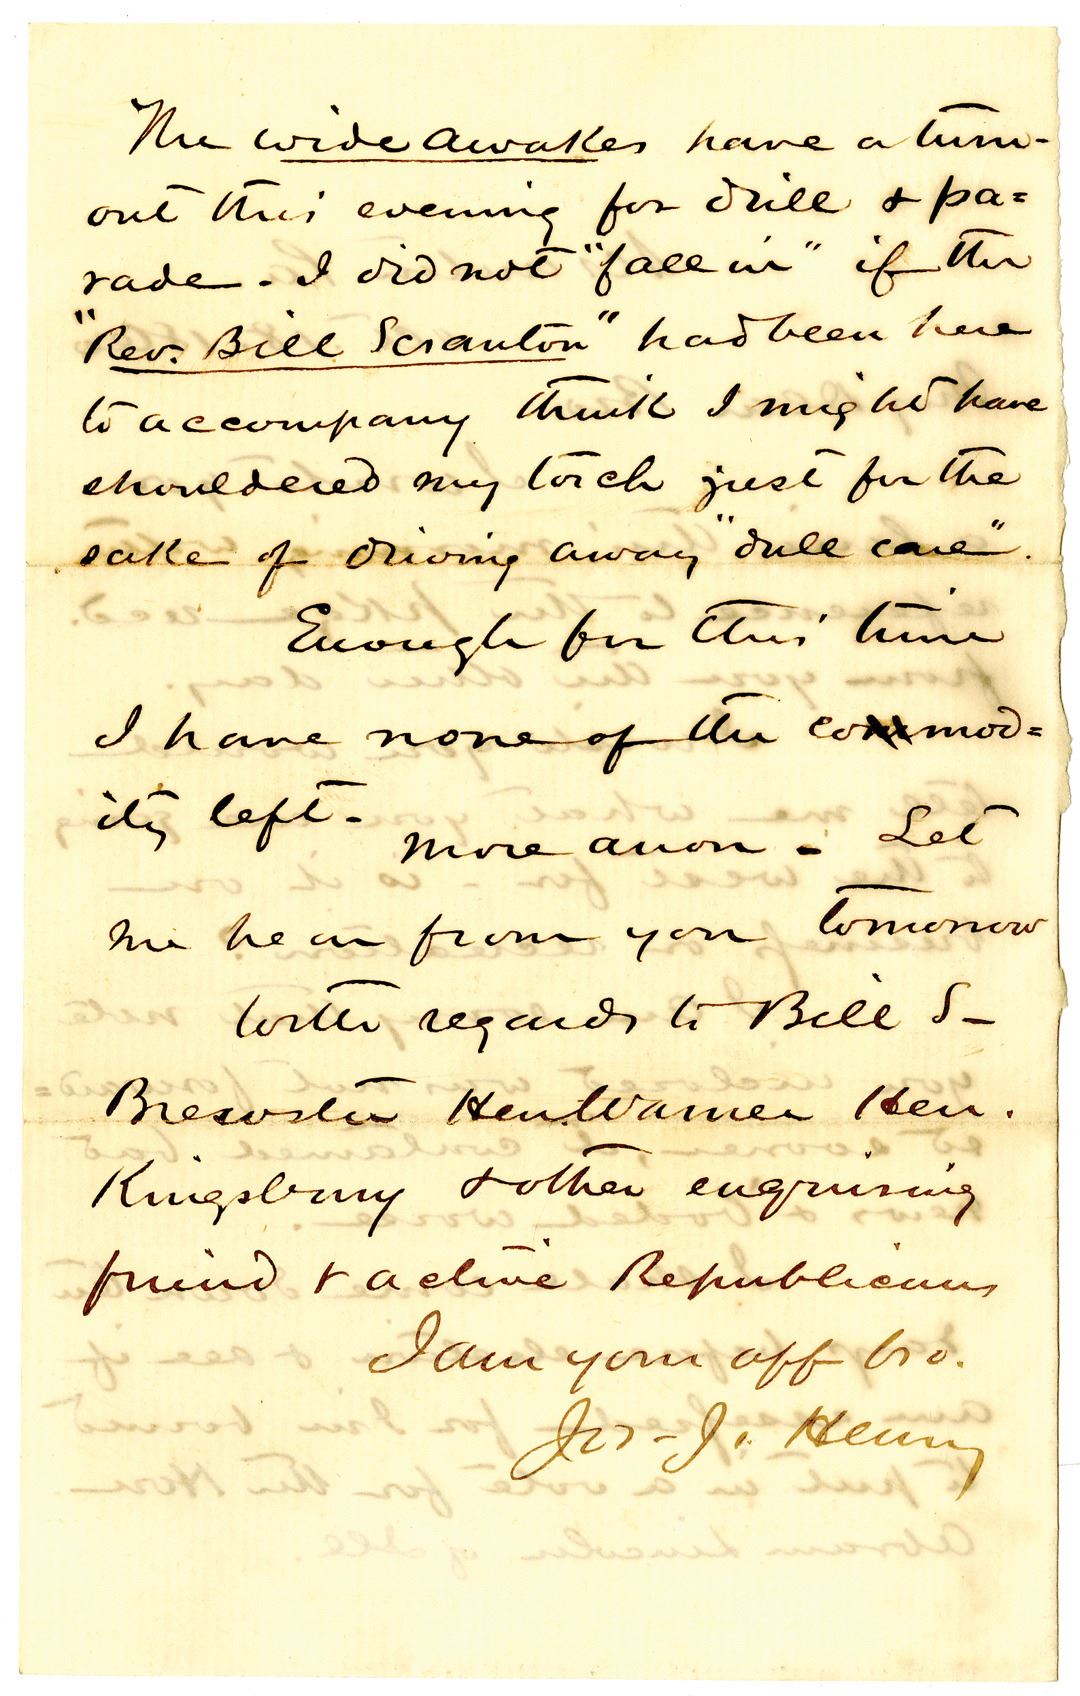 The wide awakes have a turn-
out this evening for drill & pa=
rade - I did not "fall in" if the
"Rev. Bill Scranton" had been here
to accompany think I might have
shouldered my torch just for the
sake of driving away "dull care".
Enough for this time
I have none of the commod=
ity left -
more anon - Let
me hear from you tomorrow
with regards to Bill S-
Brewster Hen. Warner Hen.
Kingsbury & other enquiring
friend & active Republicans
I am your aff bro.
Jos - J. Henry